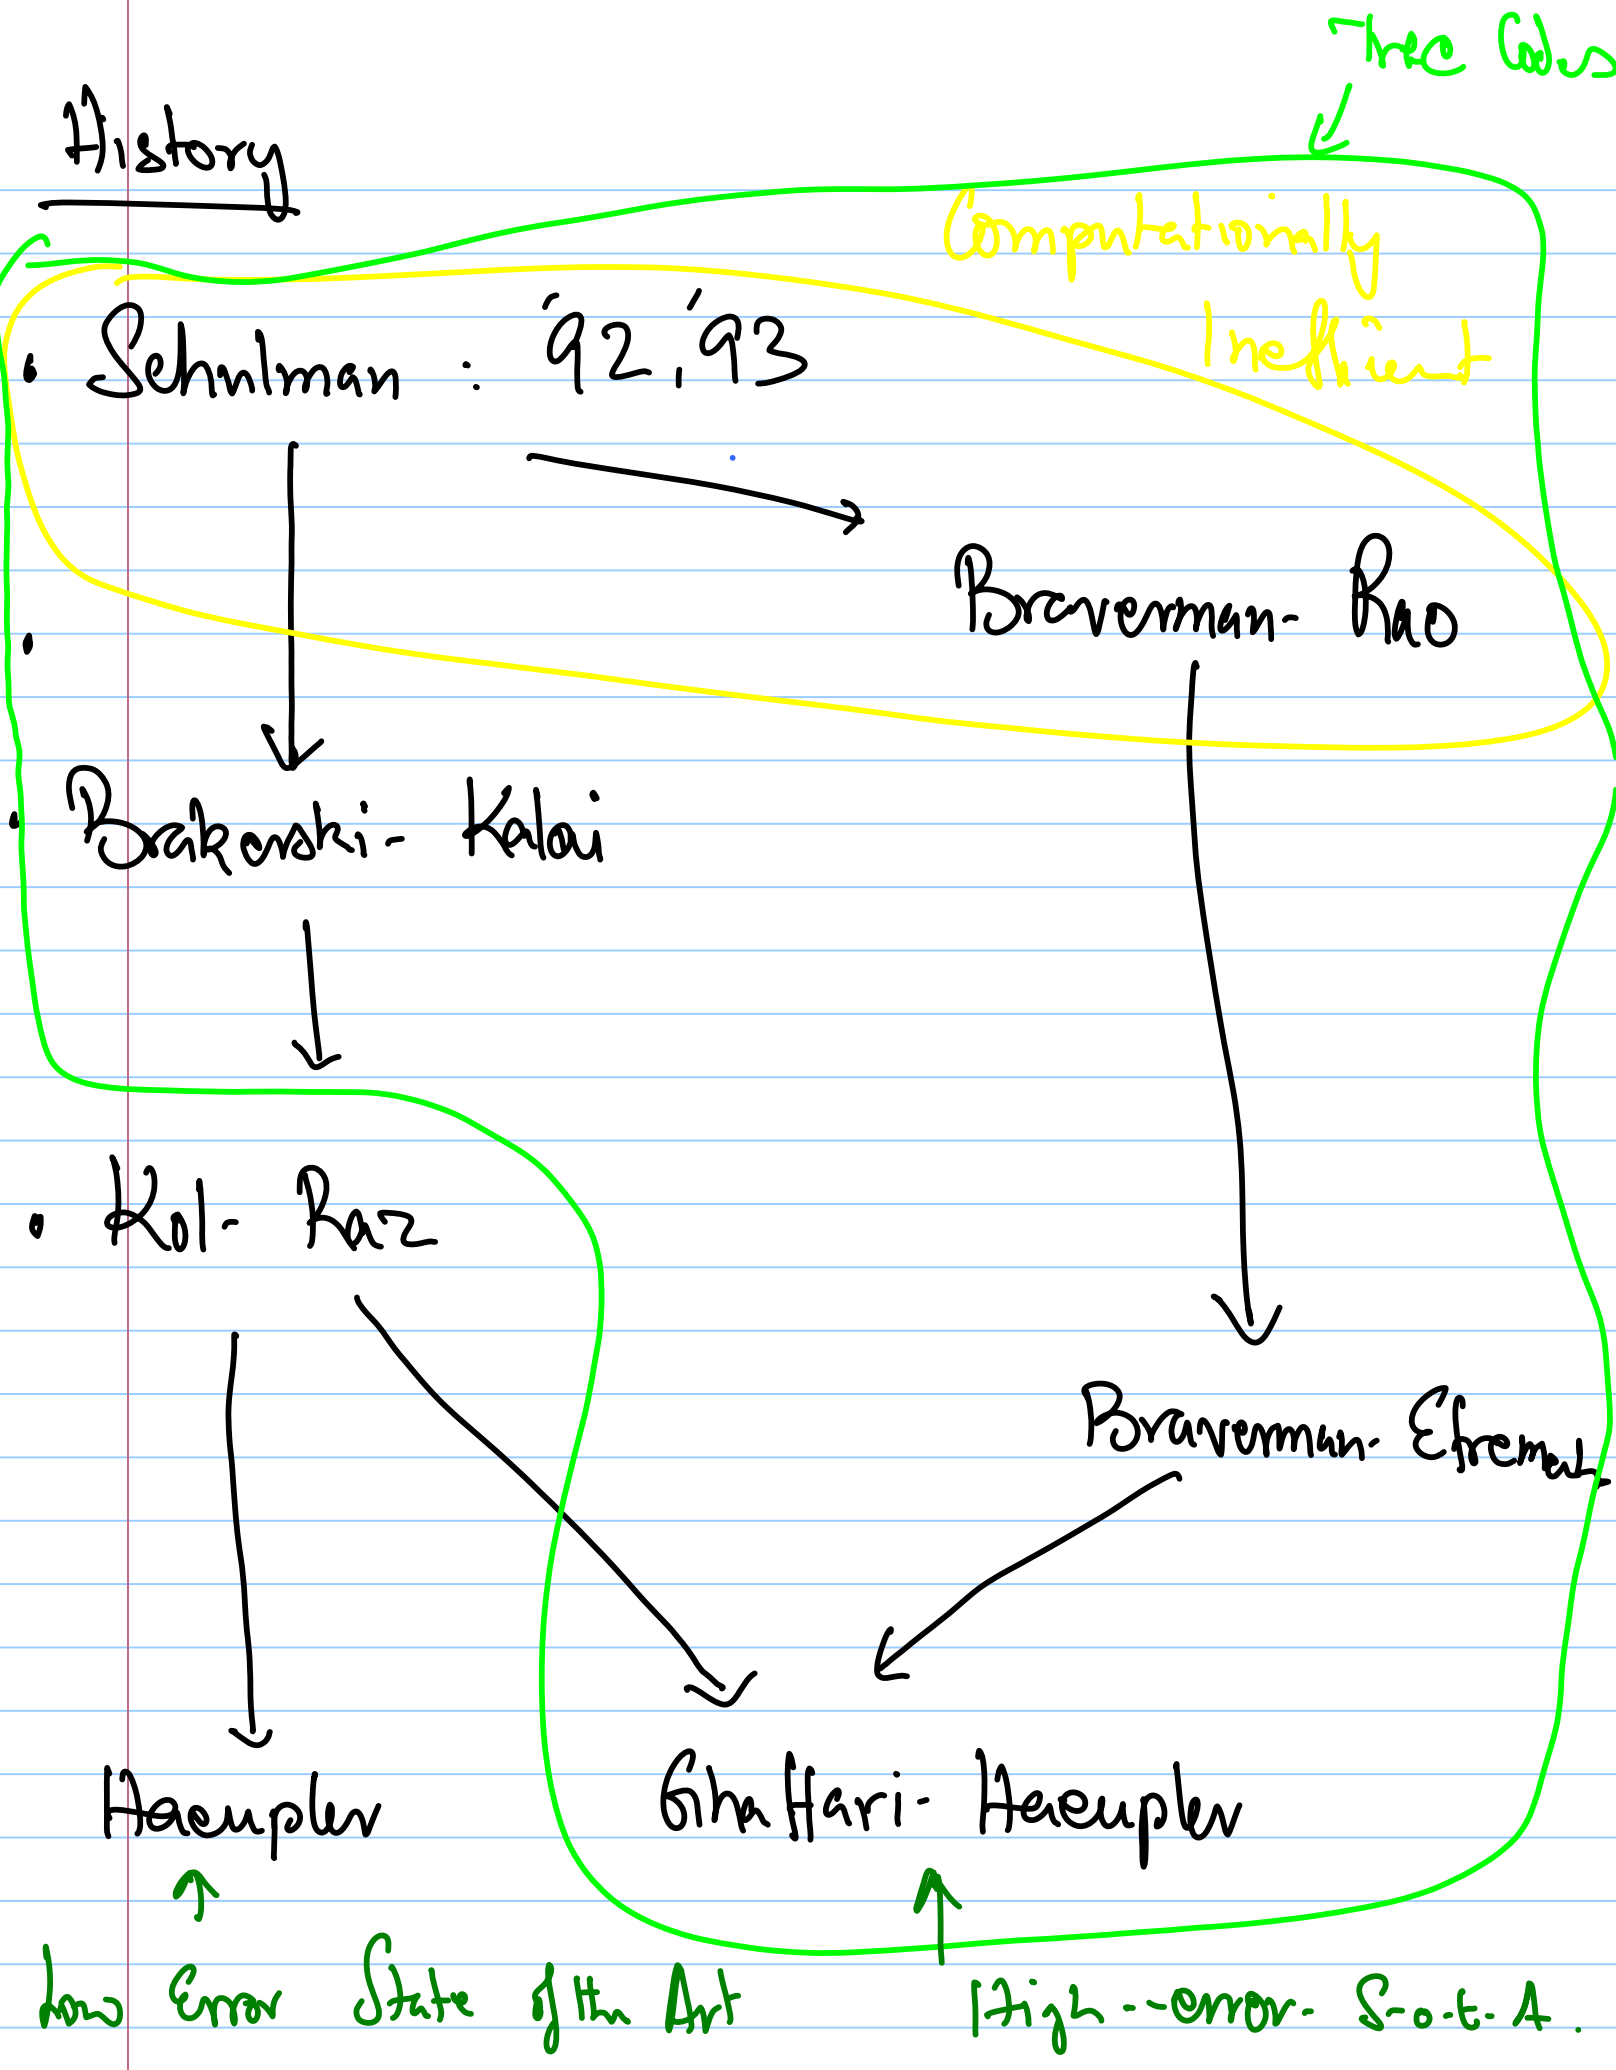 Tree Codes
History
Computationally
Inefficient
• Schulman : '92, '93
Braverman - Rao
•
• Brakerski - Kalai
• Kol - Raz
Braverman - Efremenko
Haeupler Ghaffari - Haeupler
Low Error State of the Art High - error - S-o-t-A.